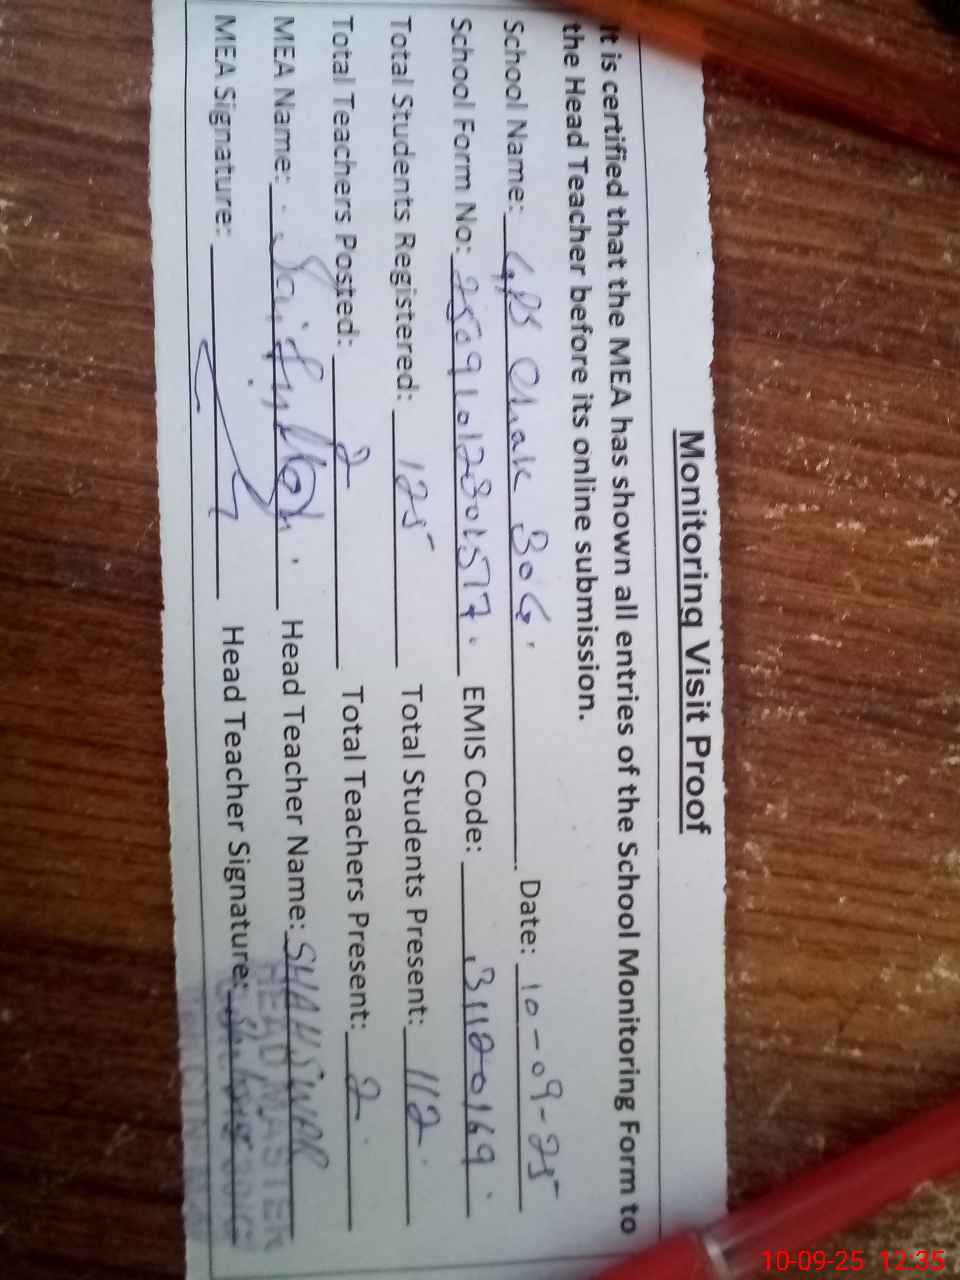 Monitoring Visit Proof
It is certified that the MEA has shown all entries of the School Monitoring Form to
the Head Teacher before its online submission.
School Name: GPS Chak 30G. Date: 10-09-25
School Form No: 25091012301577. EMIS Code: 31120169.
Total Students Registered: 125 Total Students Present: 112.
Total Teachers Posted: 2 Total Teachers Present: 2.
MEA Name: Head Teacher Name: SHAHSWAR
MEA Signature: Head Teacher Signature:
HEAD MASTER
10-09-25 12:35